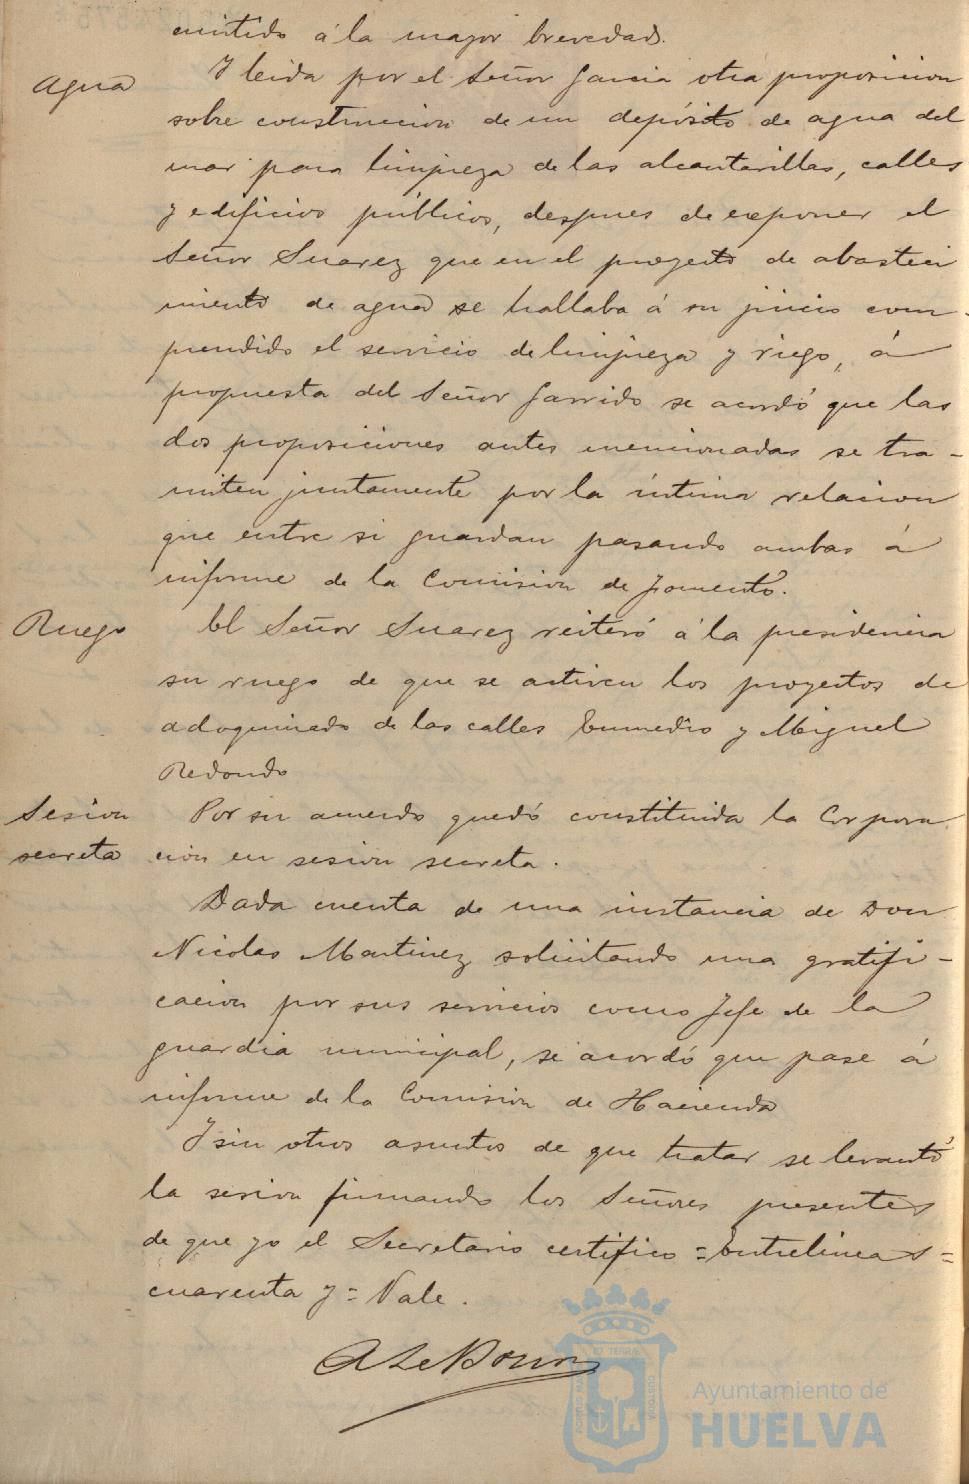 emitido á la mayor brevedad.
Agua
Y leida por el Señor Garcia otra proposicion
sobre construccion de un depósito de agua del
mar para limpieza de las alcantarillas, calles
y edificios públicos, despues de exponer el
Señor Suarez que en el proyecto de abasteci
miento de agua se hallaba á su juicio com-
prendido el servicio de limpieza y riego, á
propuesta del Señor Garrido se acordó que las
dos proposiciones antes mencionadas se tra-
miten juntamente por la intima relacion
que entre si guardan pasando ambas á
informe de la Comision de Fomento.
Ruego
El Señor Suarez reiteró á la presidencia
su ruego de que se activen los proyectos de
adoquinado de las calles Enmedio y Miguel
Redondo
Sesion
secreta
Por su acuerdo quedó constituida la Corpora
cion en sesion secreta.
Dada cuenta de una instancia de Don
Nicolas Martinez solicitando una gratifi-
cacion por sus servicios como Jefe de la
guardia municipal, se acordó que pase á
informe de la Comision de Hacienda
Y sin otros asuntos de que tratar se levantó
la sesion firmando los Señores presentes
de que yo el Secretario certifico = Entrelineas =
cuarenta y = Vale.
Ayuntamiento de
HUELVA